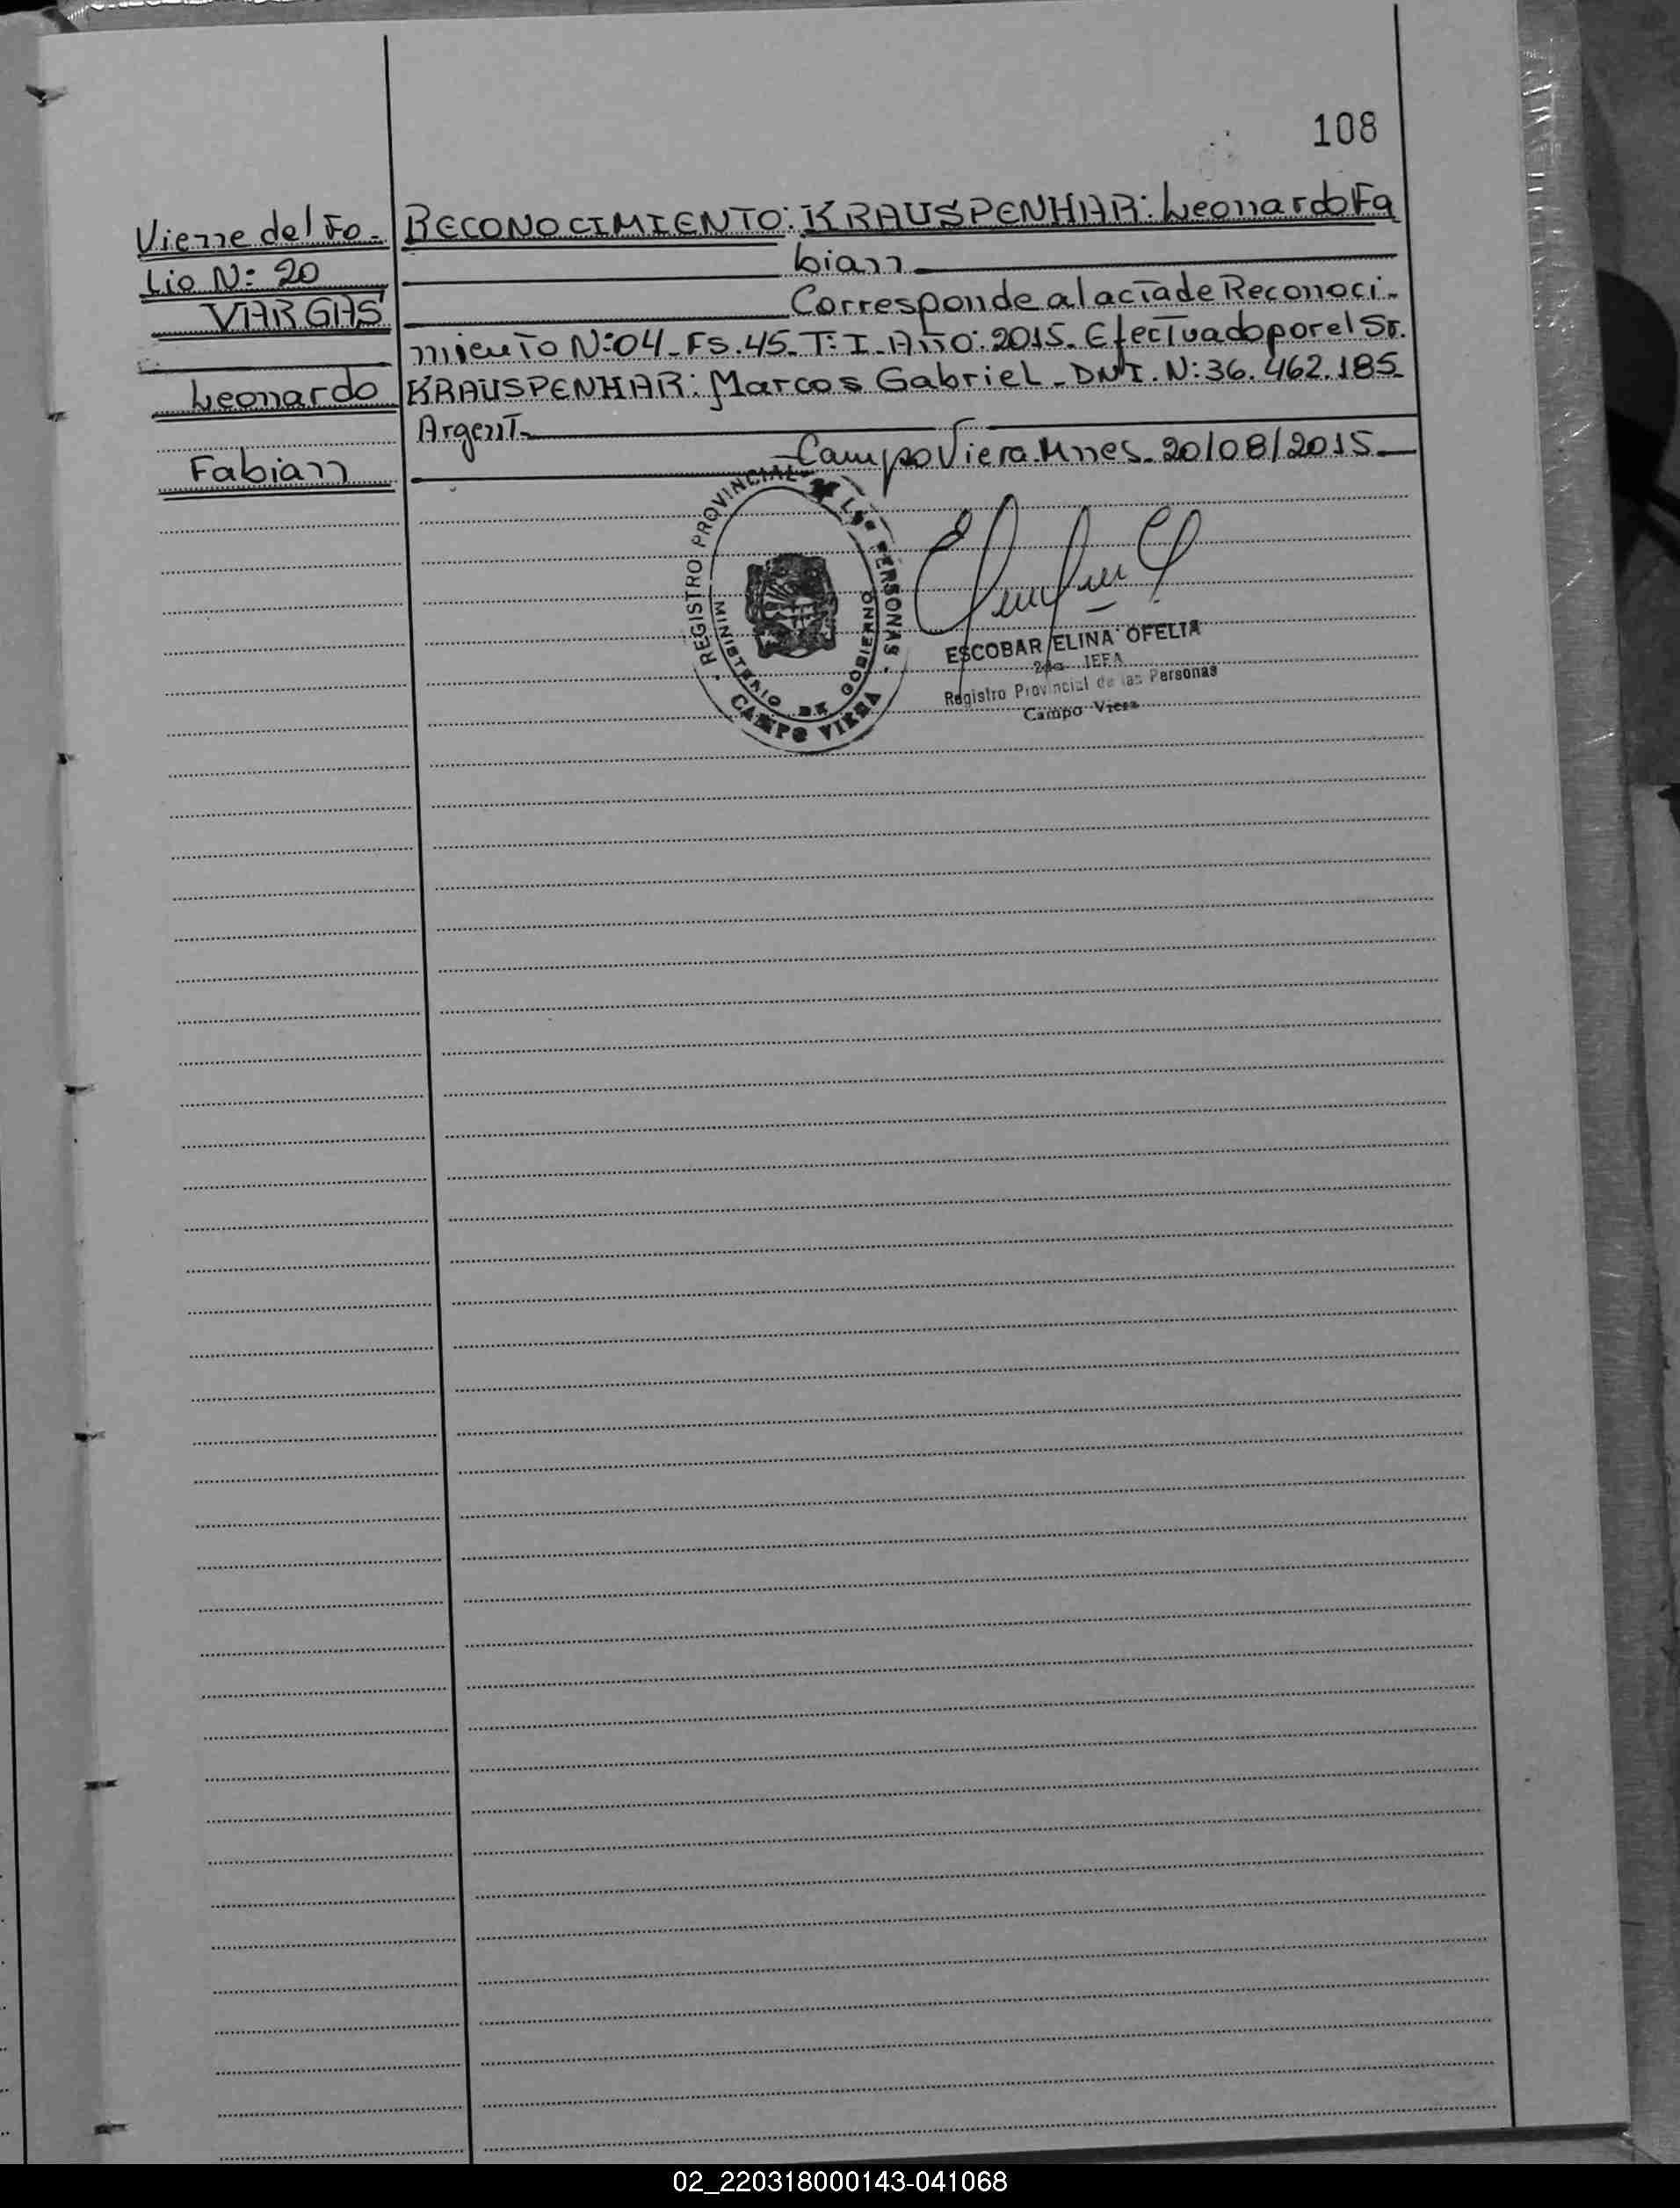 108
Viene del Fo-
Lio N: 20
VARGAS
Leonardo
Fabian
RECONOCIMIENTO: KRAUSPENHAR: Leonardo Fa
bian
Corresponde al acta de Reconoci-
miento N:04-Fs.45-T:I-Año:2015-Efectuado por el Sr.
KRAUSPENHAR: Marcos Gabriel-DNI.N:36.462.185-
Argent-
Campo Viera.Mnes-20/08/2015-
REGISTRO PROVINCIAL DE LAS PERSONAS
MINISTERIO DE GOBIERNO
CAMPO VIERA
ESCOBAR ELINA OFELIA
2da JEFA
Registro Provincial de las Personas
Campo Viera
02_220318000143-041068